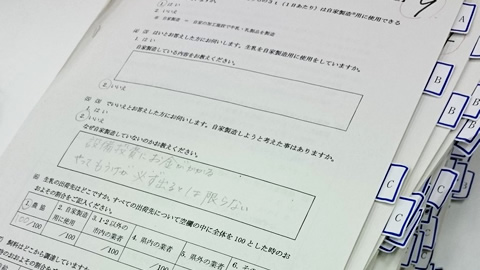 (1日あたり)は自家製造*用に使用できる
1.はい
2.いいえ
はいとお答えした方にお伺いします。生乳を自家製造用に使用をしていますか。
1.はい
2.いいえ
自家製造している内容をお教えください。
でいいえとお答えした方にお伺いします。自家製造しようと考えた事はありますか。
1.はい
2.いいえ
なぜ自家製造していないのかお教えください。
設備投資にお金がかかる
やってもうけが必ず出るとは限らない
生乳の出荷先はどこですか。すべての出荷先について空欄の中に全体を100とした時のお
およその割合をご記入ください。
1.農協 2.自家製造用に使用 3.1・2以外の市内の業者 4.県内の業者 5.県外の業者 6.そ
100/100 /100 /100 /100 /100
飼料はどこから調達していま
A
B
B
B
C
C
C